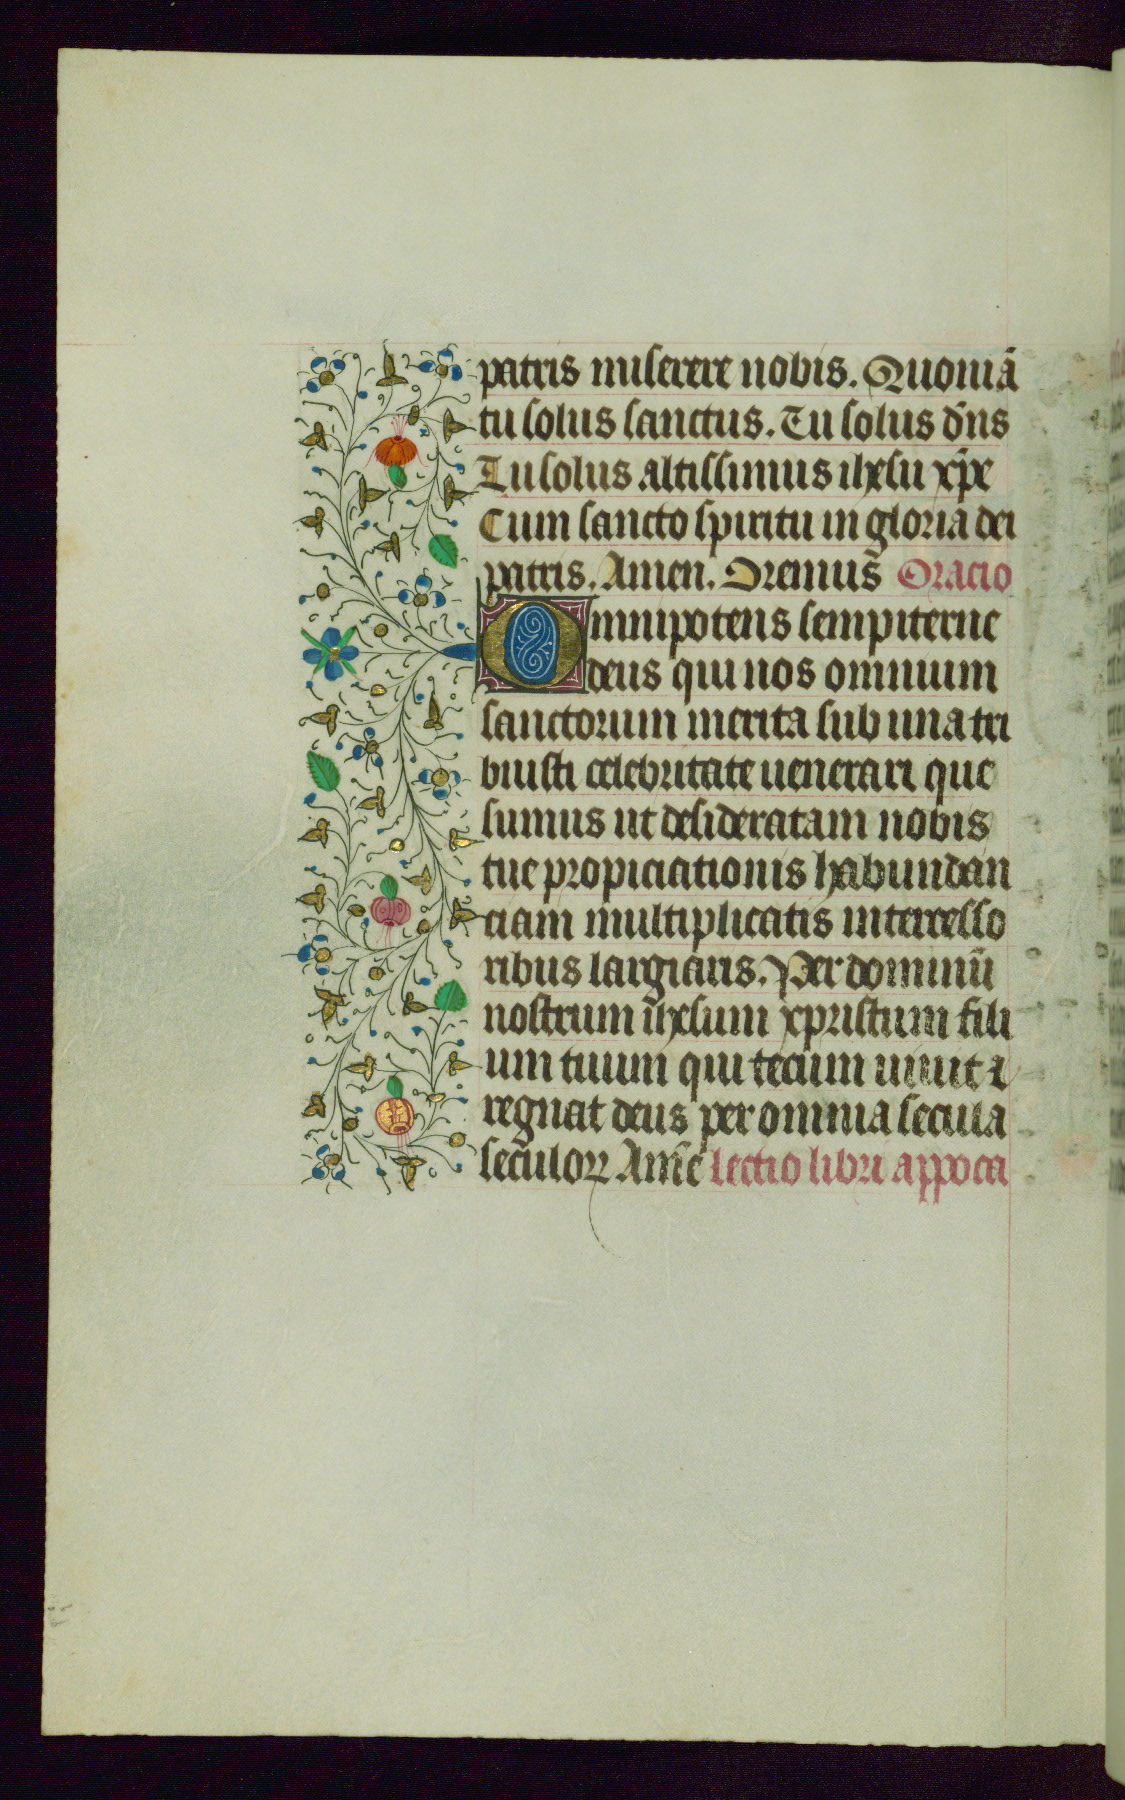 patris miserere nobis. Quoniā
tu solus sanctus. Tu solus dn̄s
Tu solus altissimus ihesu xp̄e
Cum sancto spiritu in gloria dei
patris. Amen. Oremus̄ Oracio
Omnipotens sempiterne
deus qui nos omnium
sanctorum merita sub una tri
buisti celebritate uenerari que
sumus ut desideratam nobis
tue propiciationis habundan
ciam multiplicatis intercesso
ribus largiaris. Per dominū
nostrum ihesum xpristum fili
um tuum qui tecum uiuit ⁊
regnat deus per omnia secula
seculoꝝ Amē lectio libri appoca